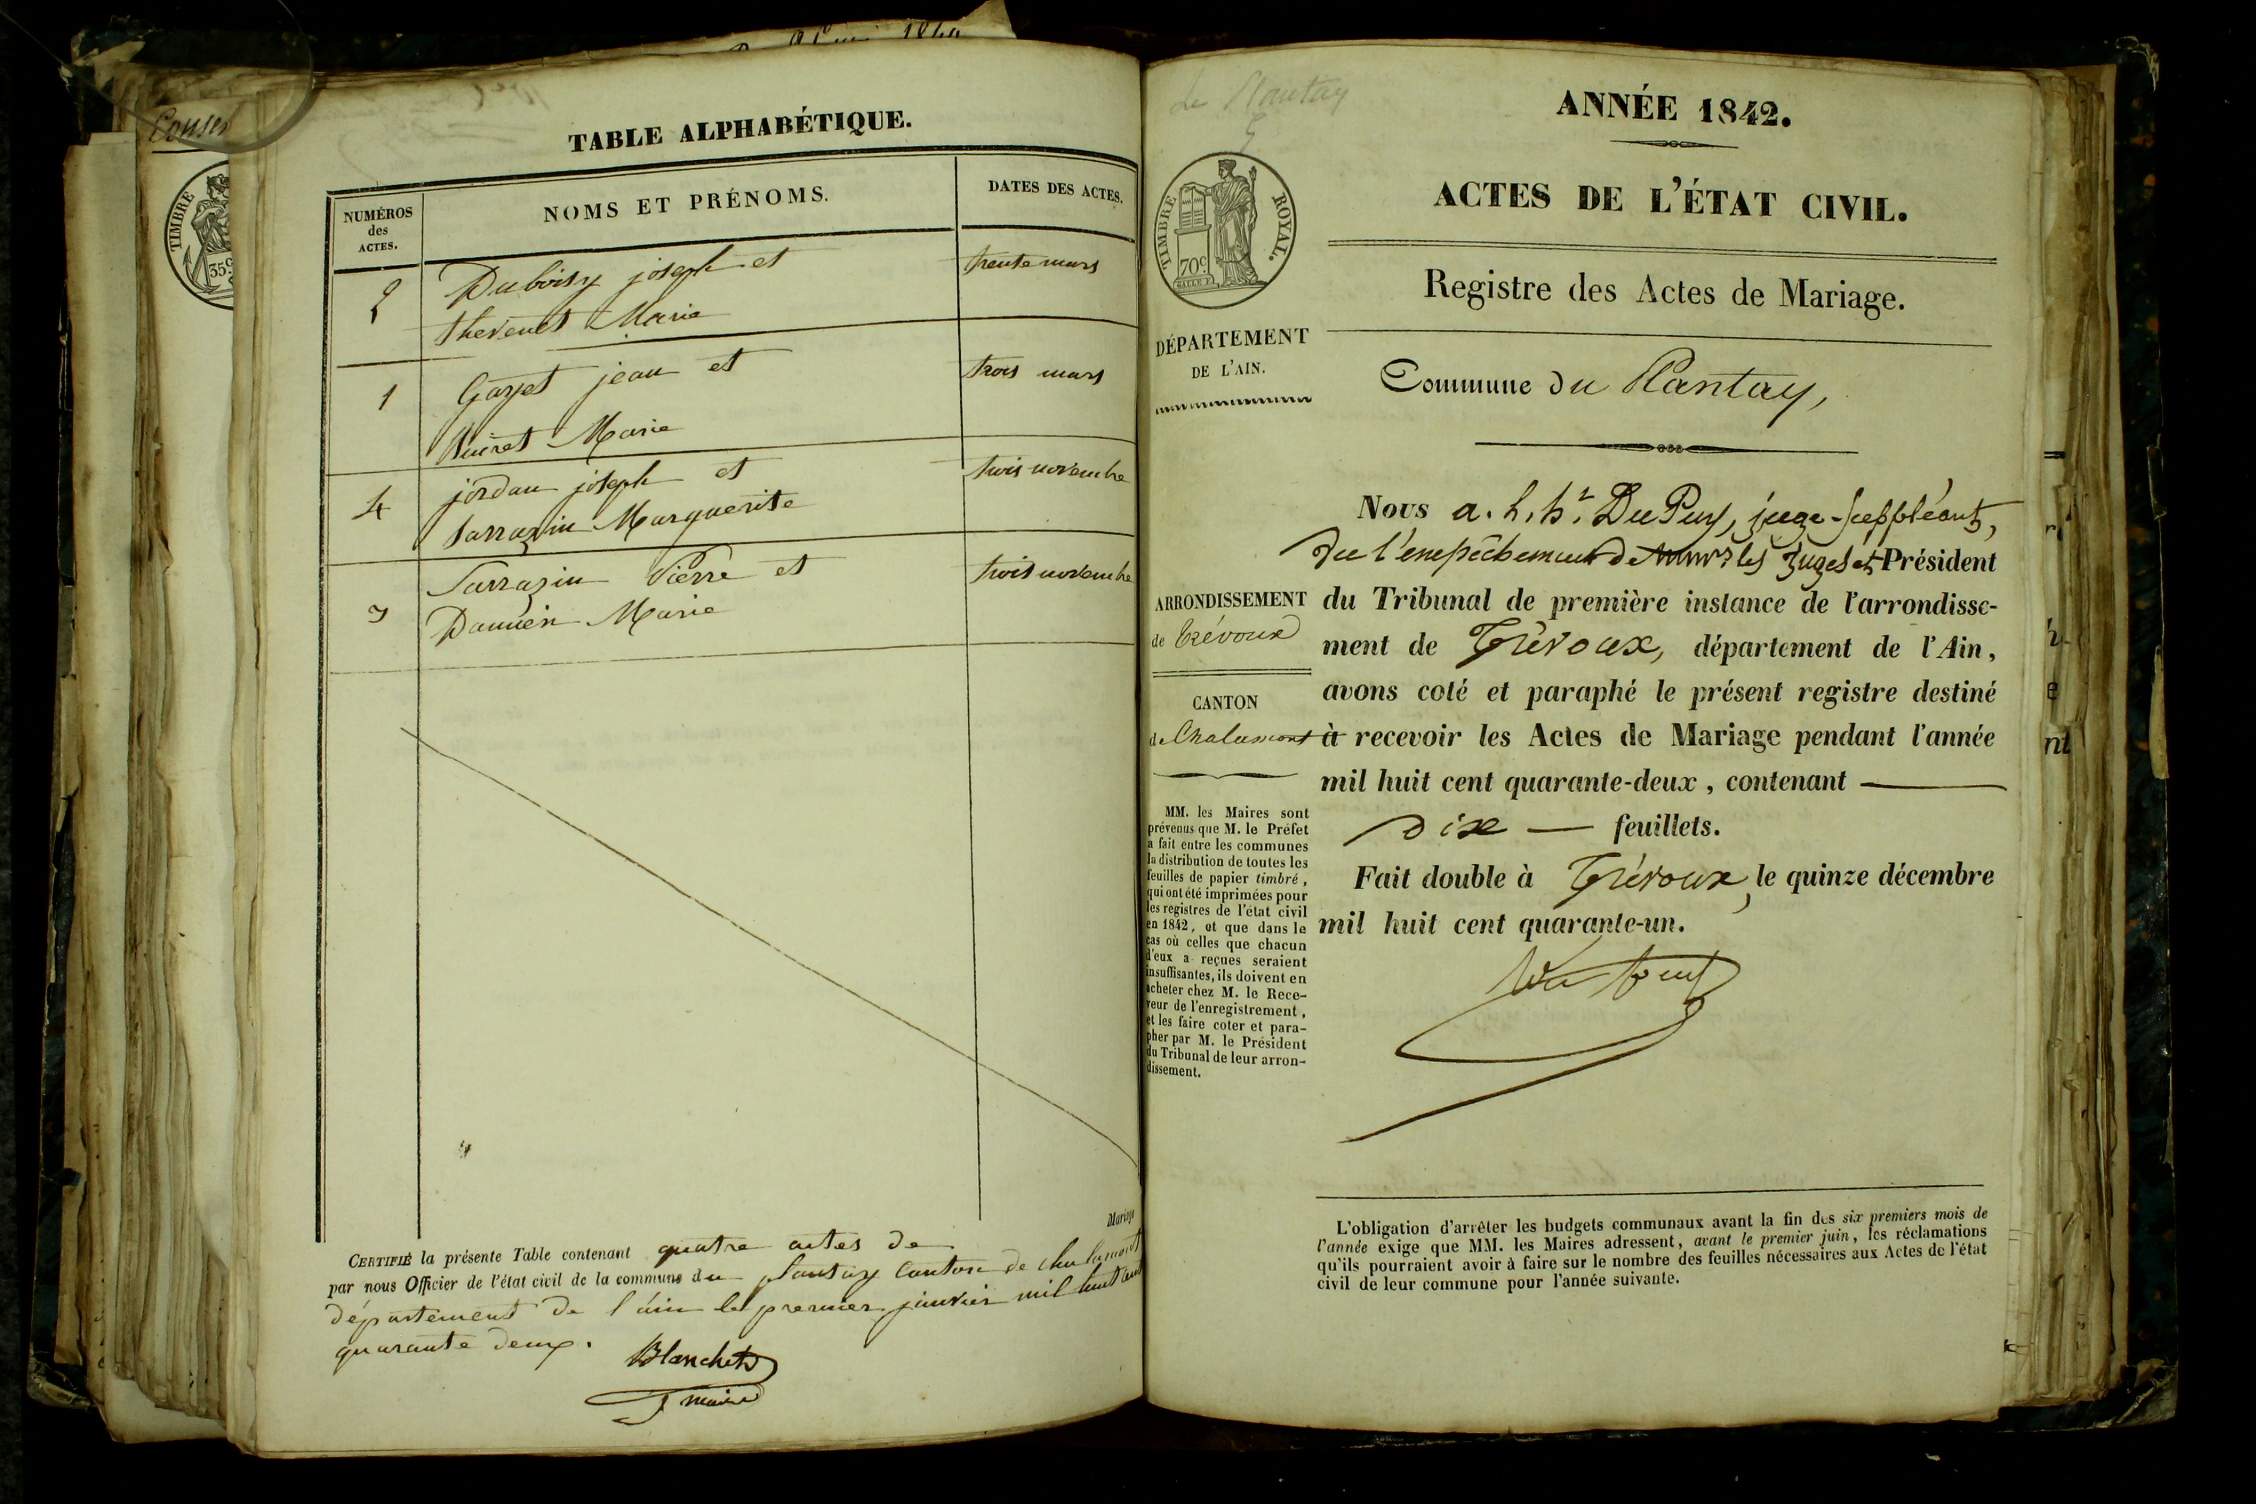 TABLE ALPHABÉTIQUE.
NUMÉROS
des
ACTES.
NOMS ET PRÉNOMS.
DATES DES ACTES.
2
Duboisy joseph et
thevenet Marie
trente mars
1
jean et
Marie
trois mars
4
jordan joseph et
Sarrazin Marguerite
trois novembre
3
Sarrazin Pierre et
Marie
trois novembre
Mariage
CERTIFIÉ la présente Table contenant quatre actes de
par nous Officier de l'état civil de la commune du plantay Canton de chalamont
département de l'ain le premier janvier mil huit cent
quarante deux.
Blanchet
maire
Le Plantay
TIMBRE
35c
TIMBRE ROYAL.
70c
ANNÉE 1842.
ACTES DE L'ÉTAT CIVIL.
Registre des Actes de Mariage.
DÉPARTEMENT
DE L'AIN.
Commune du Plantay,
ARRONDISSEMENT
de Trévoux
CANTON
de Chalamont
MM. les Maires sont
prévenus que M. le Préfet
a fait entre les communes
la distribution de toutes les
feuilles de papier timbré,
qui ont été imprimées pour
les registres de l'état civil
en 1842, et que dans le
cas où celles que chacun
d'eux a reçues seraient
insuffisantes, ils doivent en
acheter chez M. le Rece-
veur de l'enregistrement,
et les faire coter et para-
pher par M. le Président
du Tribunal de leur arron-
dissement.
Nous a. h. DuPuy, juge-suppléant,
vu l'empêchement de les juges et Président
du Tribunal de première instance de l'arrondisse-
ment de Trévoux, département de l'Ain,
avons coté et paraphé le présent registre destiné
à recevoir les Actes de Mariage pendant l'année
mil huit cent quarante-deux, contenant
dix — feuillets.
Fait double à Trévoux, le quinze décembre
mil huit cent quarante-un.
L'obligation d'arrêter les budgets communaux avant la fin des six premiers mois de
l'année exige que MM. les Maires adressent, avant le premier juin, les réclamations
qu'ils pourraient avoir à faire sur le nombre des feuilles nécessaires aux Actes de l'état
civil de leur commune pour l'année suivante.